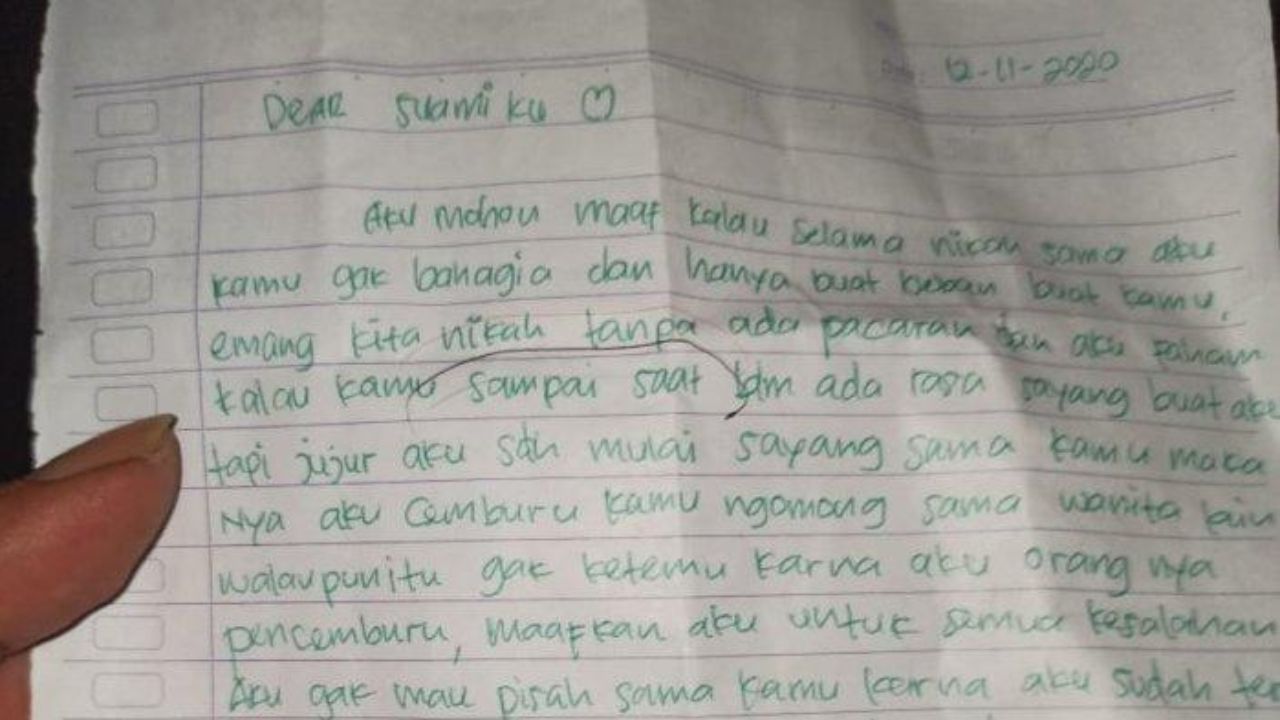 12-11-2020
Dear suamiku ♡
Aku mohon maaf kalau selama nikah sama aku
kamu gak bahagia dan hanya buat beban buat kamu,
emang kita nikah tanpa ada pacaran dan aku paham
kalau kamu sampai saat blm ada rasa sayang buat aku
tapi jujur aku sdh mulai sayang sama kamu maka
nya aku cemburu kamu ngomong sama wanita lain
walaupun itu gak ketemu karna aku orang nya
pencemburu, maafkan aku untuk semua kesalahan
Aku gak mau pisah sama kamu karna aku sudah